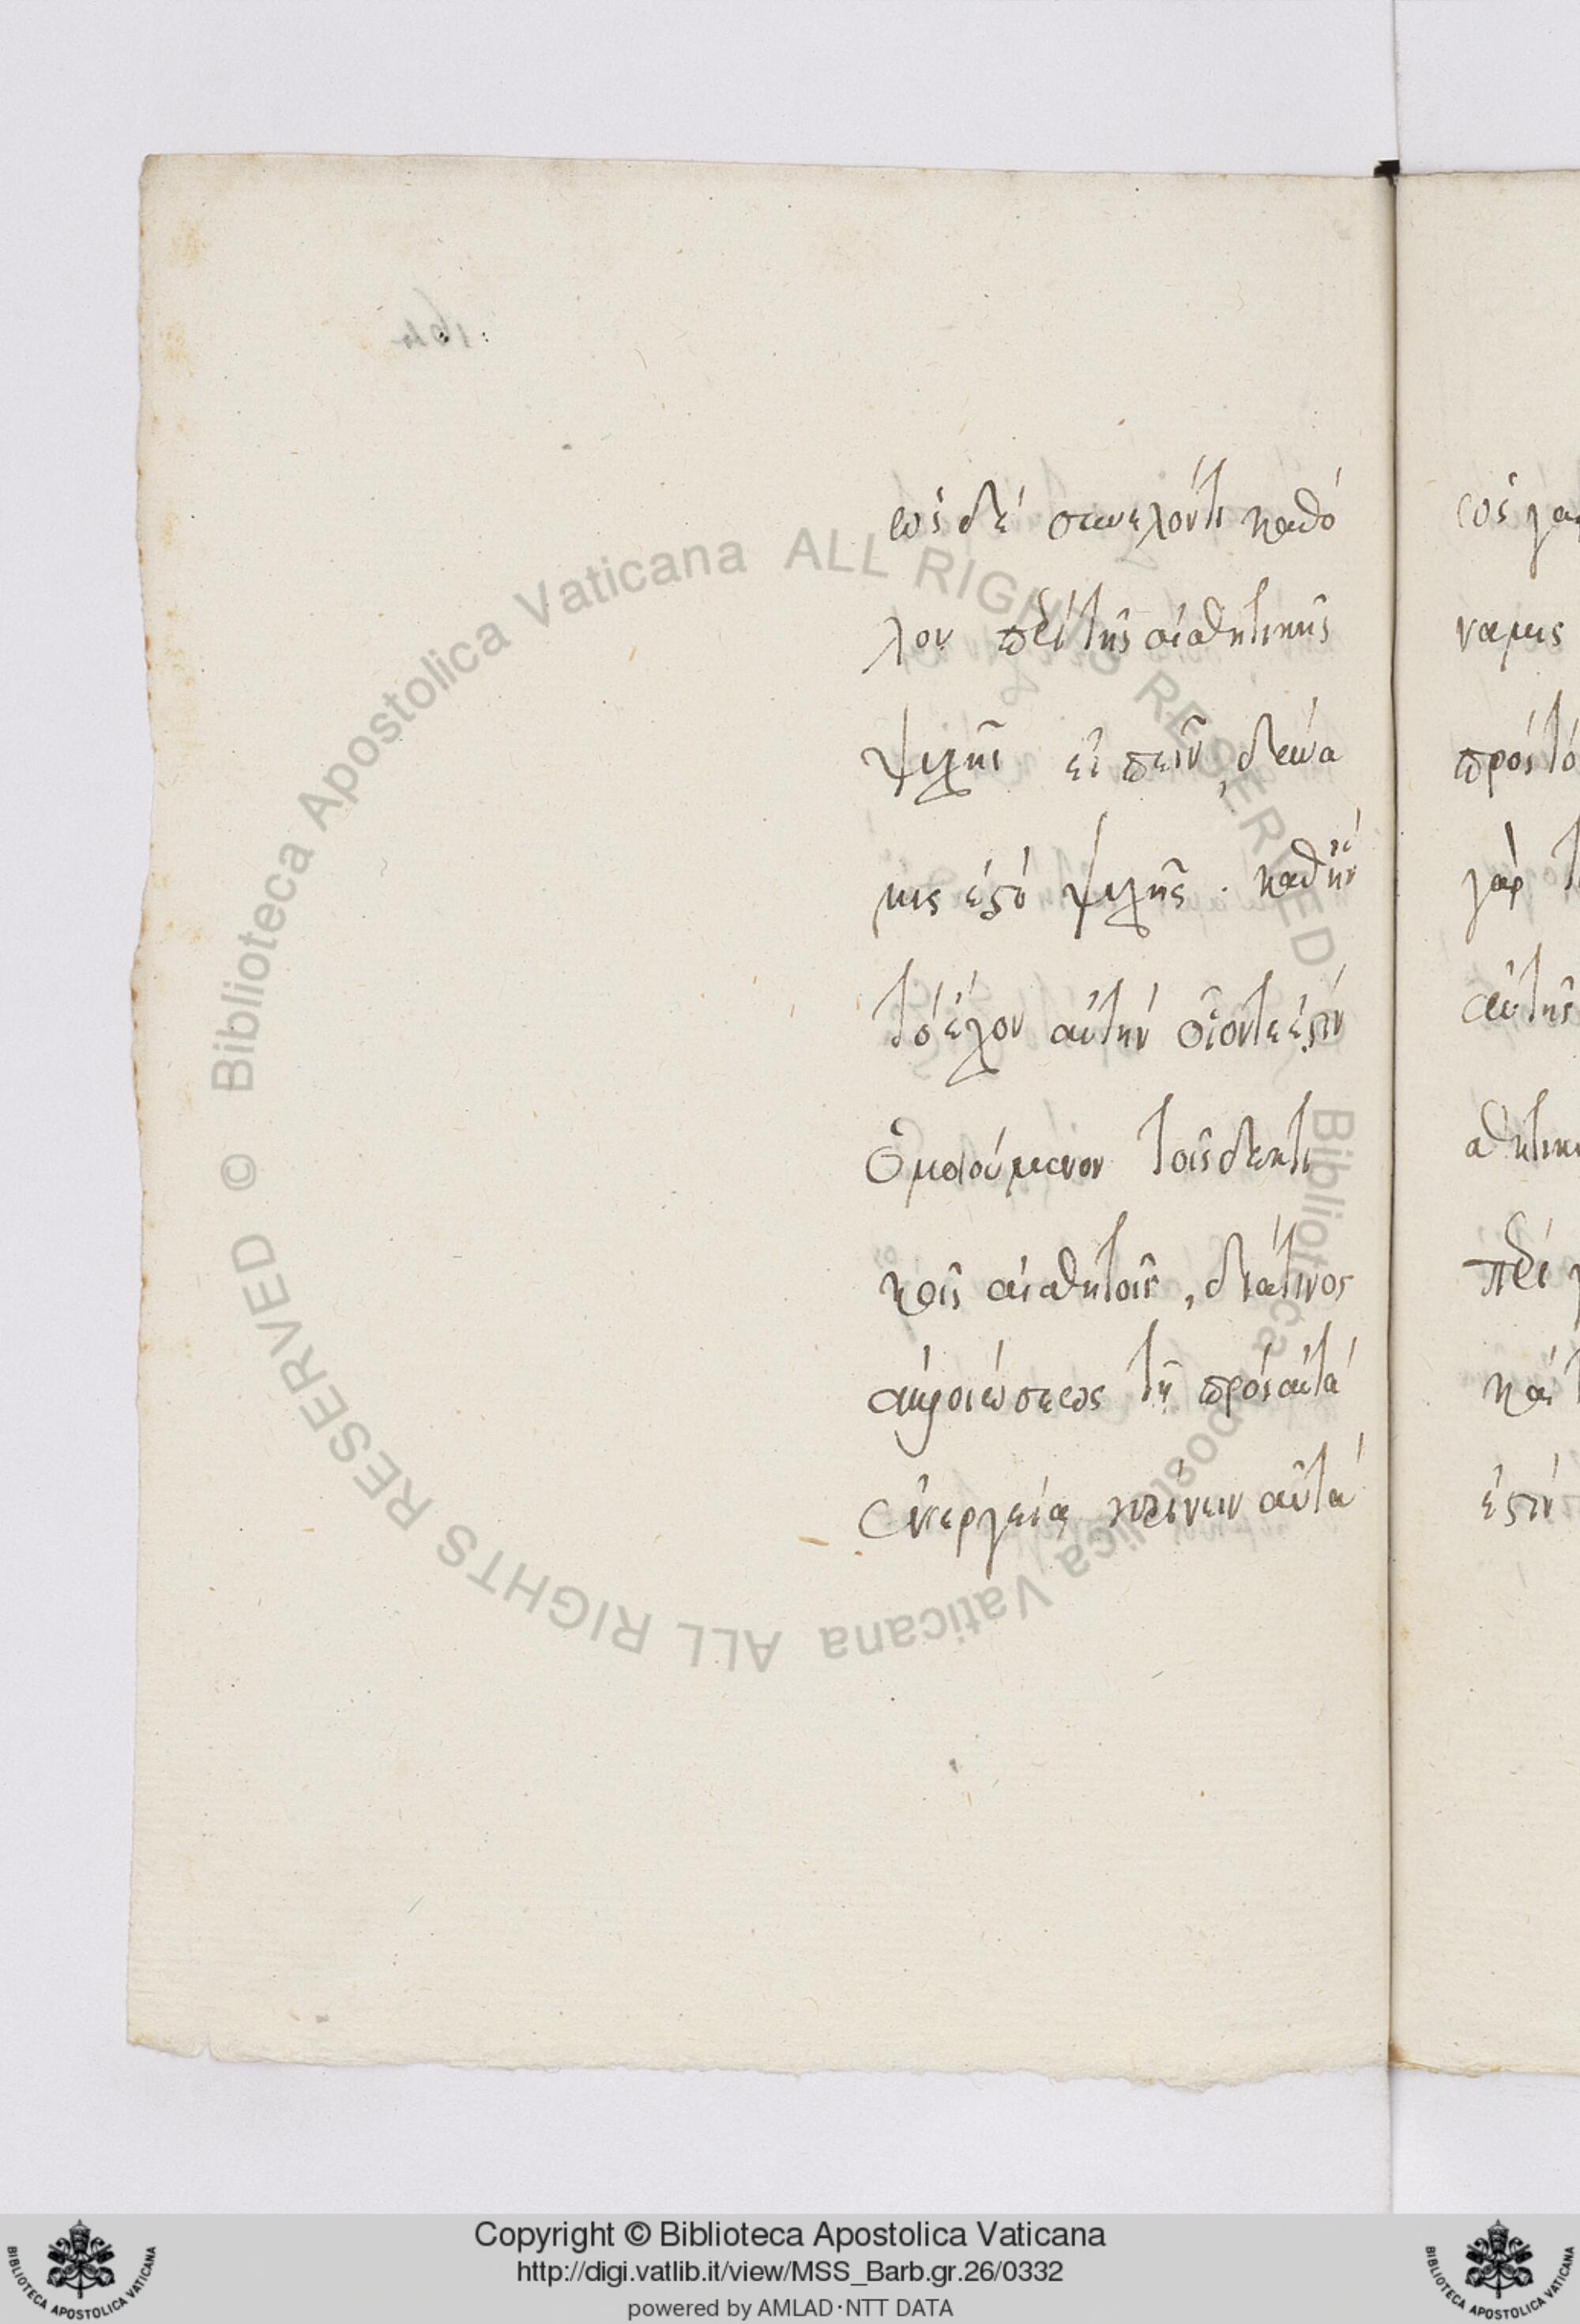 ὡς δὲ συνελόντι καθό
λου περὶ τῆς αἰσθητικῆς
ψυχῆς εἰπεῖν, δύνα
μις ἐστὶ ψυχῆς. καθ' ἣν
τὸ ἔχον αὐτὴν οἷόντε ἐστὶν
ὁμοιούμενον τοῖς δεκτι
κοῖς αἰσθητοῖς, διά τινος
ἀλλοιώσεως τῇ πρὸς αὐτὰ
ἐνεργείᾳ κρίνειν αὐτὰ
ὡς γα
ναμις
πρὸς τὸ
γὰρ τ
αὐτῆς
σθητικ
περὶ
καὶ τ
ἐστὶν
164
© Biblioteca Apostolica Vaticana ALL RIGHTS RESERVED
Biblioteca Apostolica Vaticana ALL RIGHTS RESERVED
Copyright © Biblioteca Apostolica Vaticana
http://digi.vatlib.it/view/MSS_Barb.gr.26/0332
powered by AMLAD·NTT DATA
BIBLIOTECA APOSTOLICA VATICANA
BIBLIOTECA APOSTOLICA VATICANA